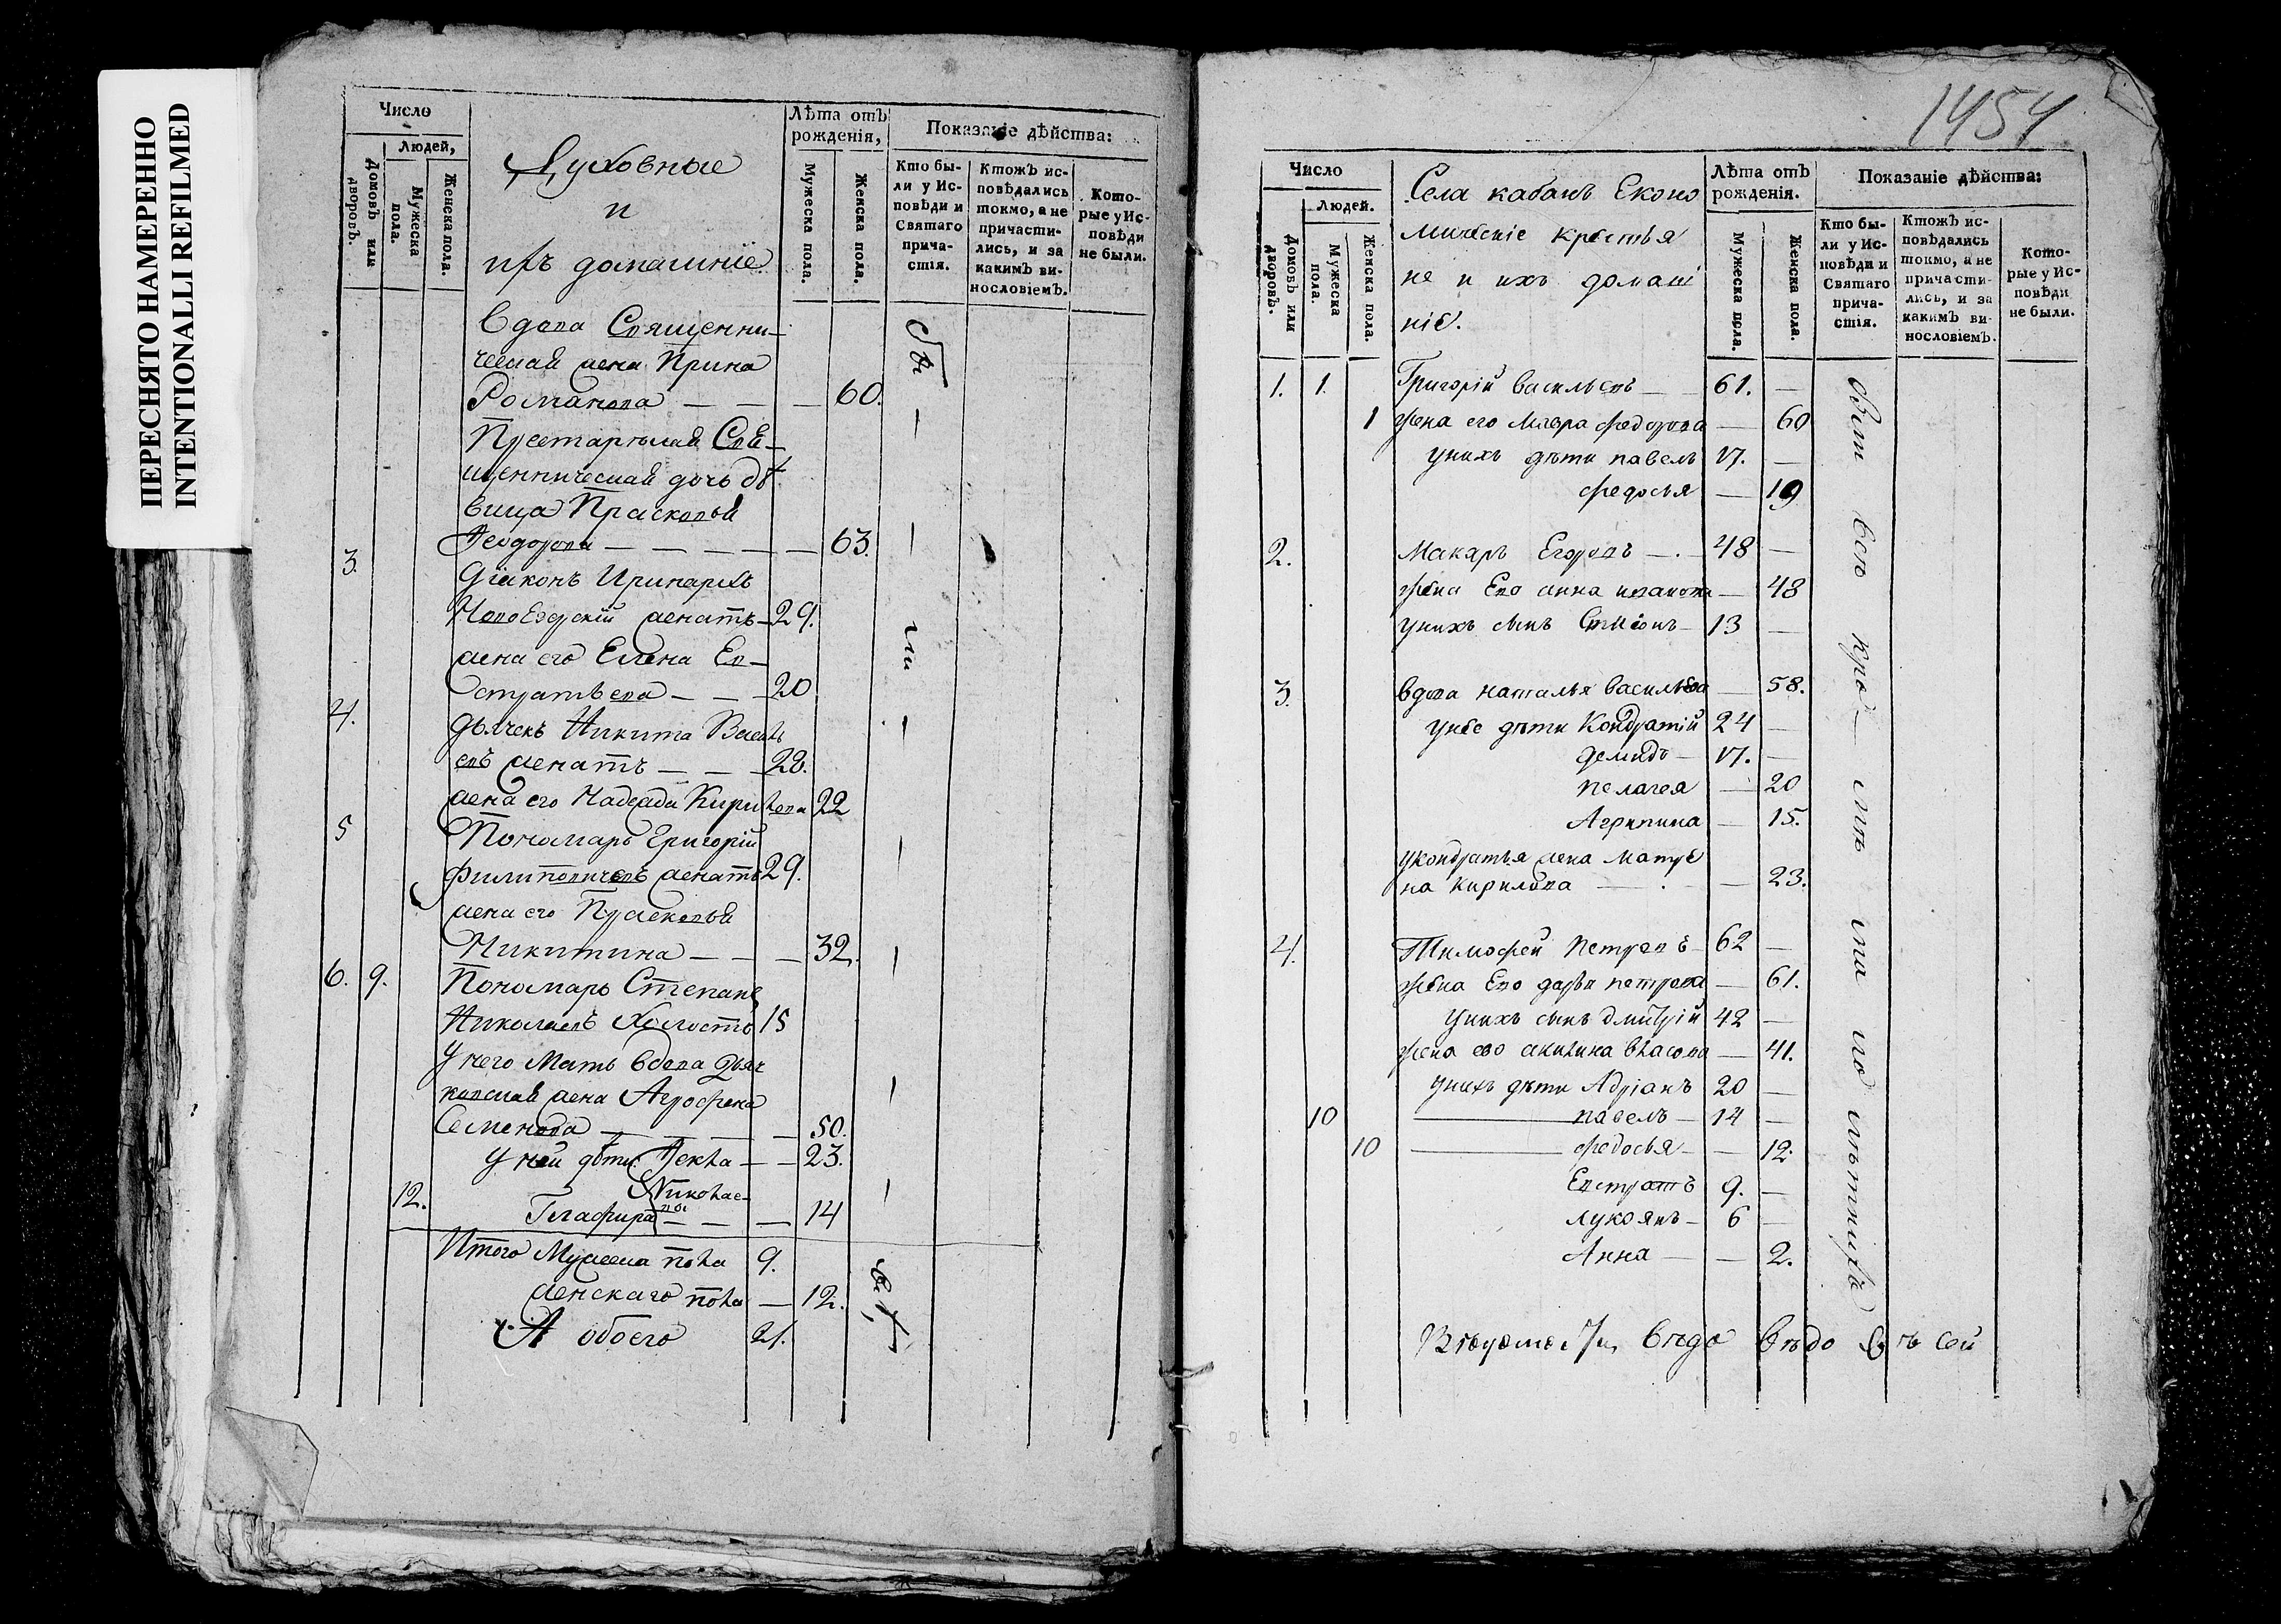 ПЕРЕСНЯТО НАМЕРЕННО
INTENTIONALLI REFILMED
Число
Людей,
Домовъ или дворовъ.
Мужеска пола.
Женска пола.
Духовные
и
ихъ домашнїе
Лѣта отъ рожденія,
Мужеска пола.
Женска пола.
Показаніе дѣйства:
Кто были у Исповѣди и Святаго причастія.
Ктожъ исповѣдались токмо, а не причастились, и за какимъ винословіемъ.
Которые у Исповѣди не были.
Вдова Священни-
ческая жена Ирина
Романова — — — 60.
Престарелая Свя-
щенническая дочь дѣ
вица Прасковья
Феодорова — — — — — 63.
3. Діаконъ Иринархъ
женатъ — 29.
жена его Елена Ев-
стратьева — — — 20
4. Дьячекъ Никита Василь
евъ женатъ — — — 28.
жена его Надежда Кирилова 22
5 Пономарь Григорій
Филиповичевъ женатъ 29.
жена его Прасковья
Никитина — — — 32.
6. 9. Пономарь Степанъ
Николаевъ Холостъ 15
У него Мать вдова Дьяч
ковская жена Агрофена
Семенова — — — — 50.
у ней дѣти Фекла — — 23.
Николае-
вы
12. Глафира — — — 14
Итого Мужеска пола 9.
женскаго пола — 12.
А обоего 21.
1454
Число
Людей.
Домовъ или дворовъ.
Мужеска пола.
Женска пола.
Села кабанъ Еконо
мическіе крестья
не и ихъ домаш
ніе.
Лѣта отъ рожденія.
Мужеска пола.
Женска пола.
Показаніе дѣйства:
Кто были у Исповѣди и Святаго причастія.
Ктожъ исповѣдались токмо, а не причастились, и за какимъ винословіемъ.
Которые у Исповѣди не были.
1. 1. Григорій васильевъ — 61. —
1 жена его мавра федорова — 60
унихъ дѣти павелъ 17. —
федосья — 19
2. Макаръ Егоровъ — 48 —
жена Ево анна иванова — 48
унихъ сынъ Симіонъ — 13 —
3. вдова наталья васильева — 58.
унее дѣти Кондратій 24 —
демидъ — 17. —
пелагея — 20
Агрипина — 15.
укондратья жена матре
на кирилова — — 23.
4. Тимофей петровъ — 62 —
жена Ево дарья петрова — 61.
унихъ сынъ дмитрій 42 —
жена ево акилина власова — 41.
унихъ дѣти Адріанъ 20 —
10 павелъ — 14 —
10 федосья — — 12.
Евстратъ 9. —
лукоянъ — 6 —
Анна — — 2.